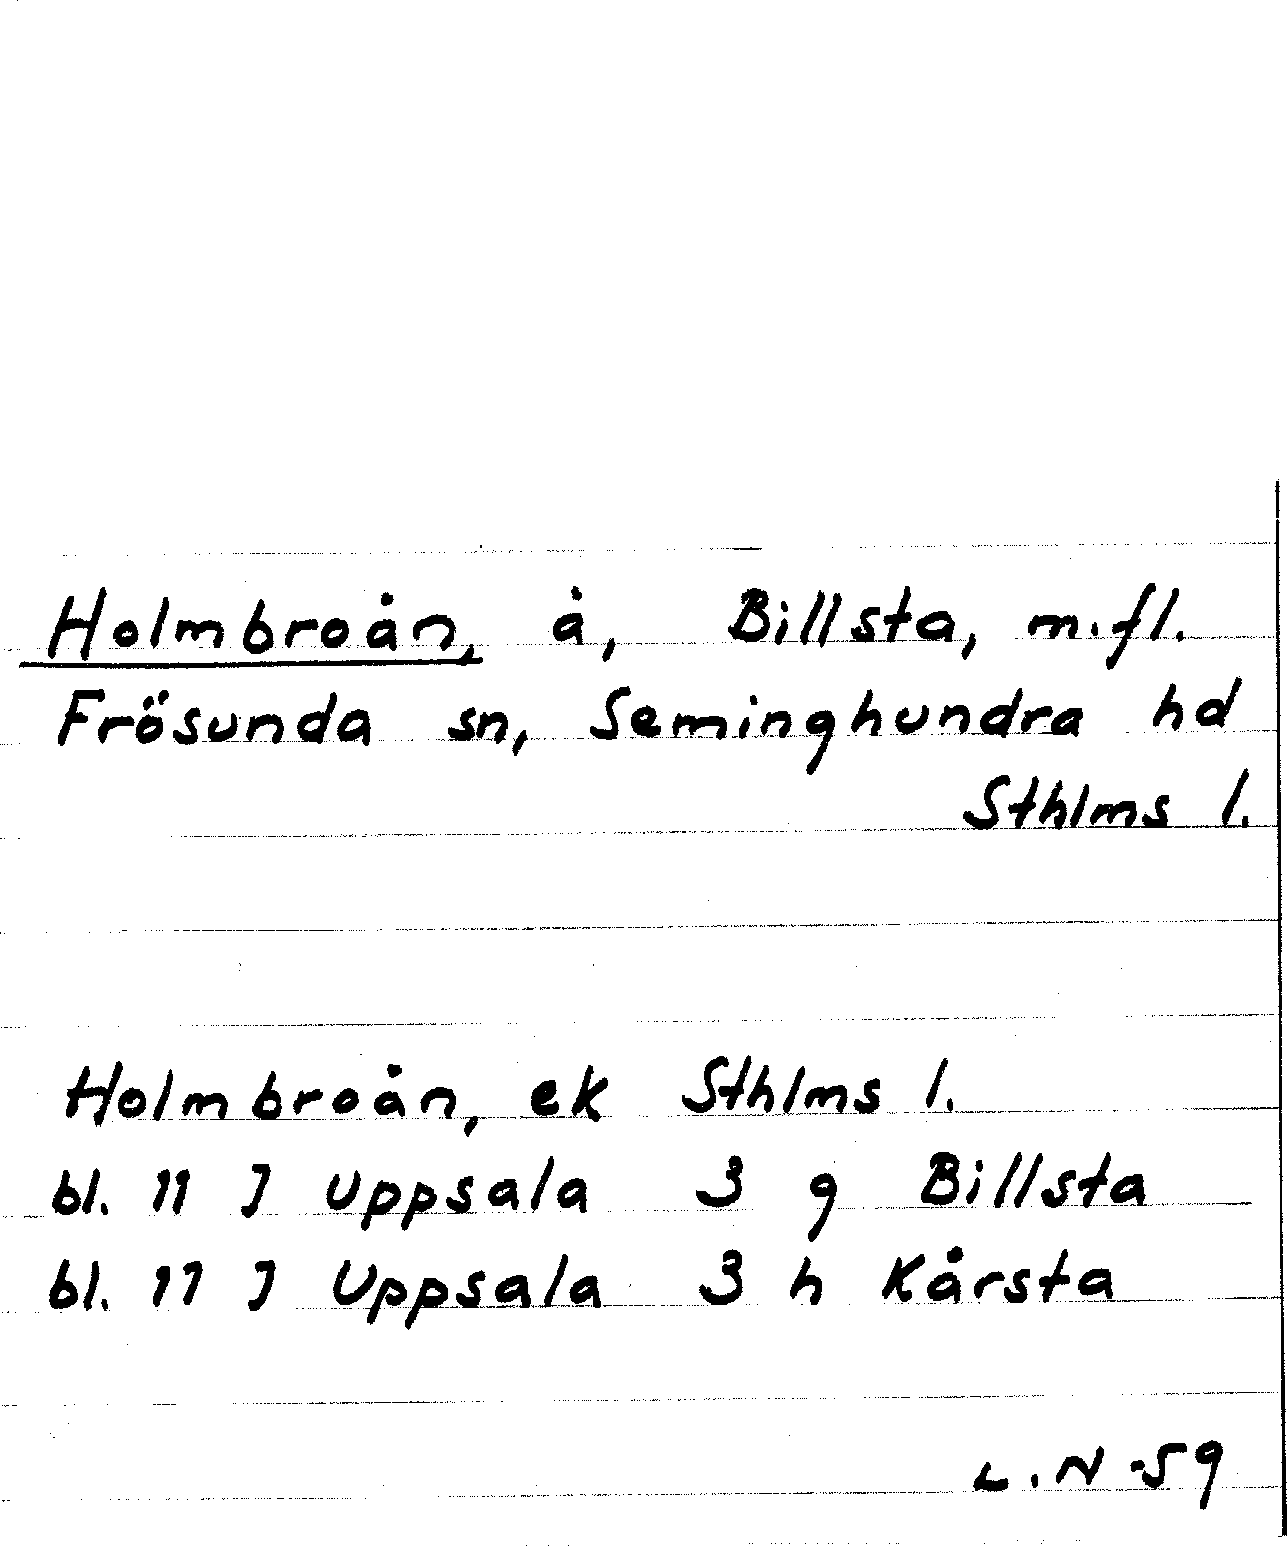 Holmbroån, å, Billsta, m.fl.
Frösunda sn, Seminghundra hd
Sthlms l.
Holmbroån, ek Sthlms l.
bl. 11 J Uppsala 3 g Billsta
bl. 11 J Uppsala 3 h Kårsta
L.N -59